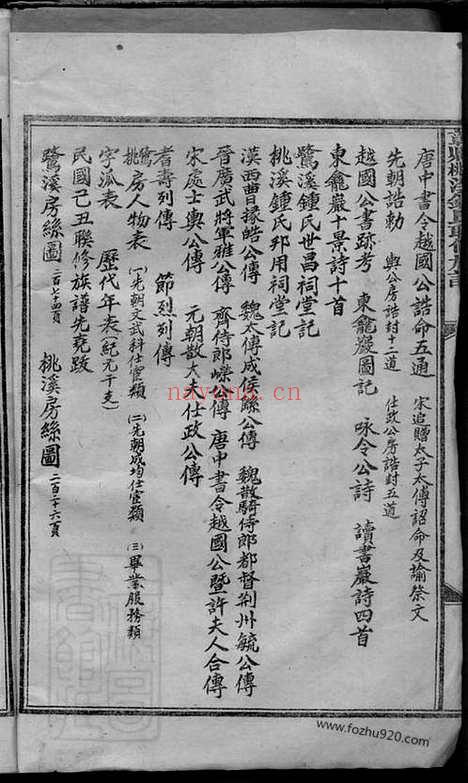 唐中書令越國公誥命五通　宋追贈太子太傅詔命及諭祭文
先朝誥勅　輿公房誥封十二道　仕政公房誥封五道
越國公書跡考　東龕巖圖記　咏令公詩　讀書巖詩四首
東龕巖十景詩十首
鷺溪鍾氏世昌祠堂記
桃溪鍾氏邦用祠堂記
漢西曹掾皓公傳　魏太傅成侯繇公傳　魏散騎侍郎都督荊州毓公傳
晉廣武將軍雅公傳　齊侍郎嶸公傳　唐中書令越國公暨許夫人合傳
宋處士輿公傳　元朝散大夫仕政公傳
耆壽列傳　節烈列傳
鷺桃房人物表　(一)先朝文武科仕宦類　(二)先朝成均仕宦類　(三)畢業服務類
字派表　歷代年表(紀元干支)
民國己丑聯修族譜先竟跋
鷺溪房絲圖　二百六十四頁　桃溪房絲圖　二百二十六頁
nayona.cn
www.fozhu920.com